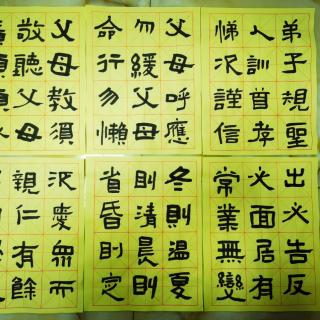 弟子規聖
人訓首孝
悌次謹信
父母呼應
勿緩父母
命行勿懶
父母教須
敬聽父母
出必告反
必面居有
常業無變
冬則溫夏
則清晨則
省昏則定
汎愛眾而
親仁有餘